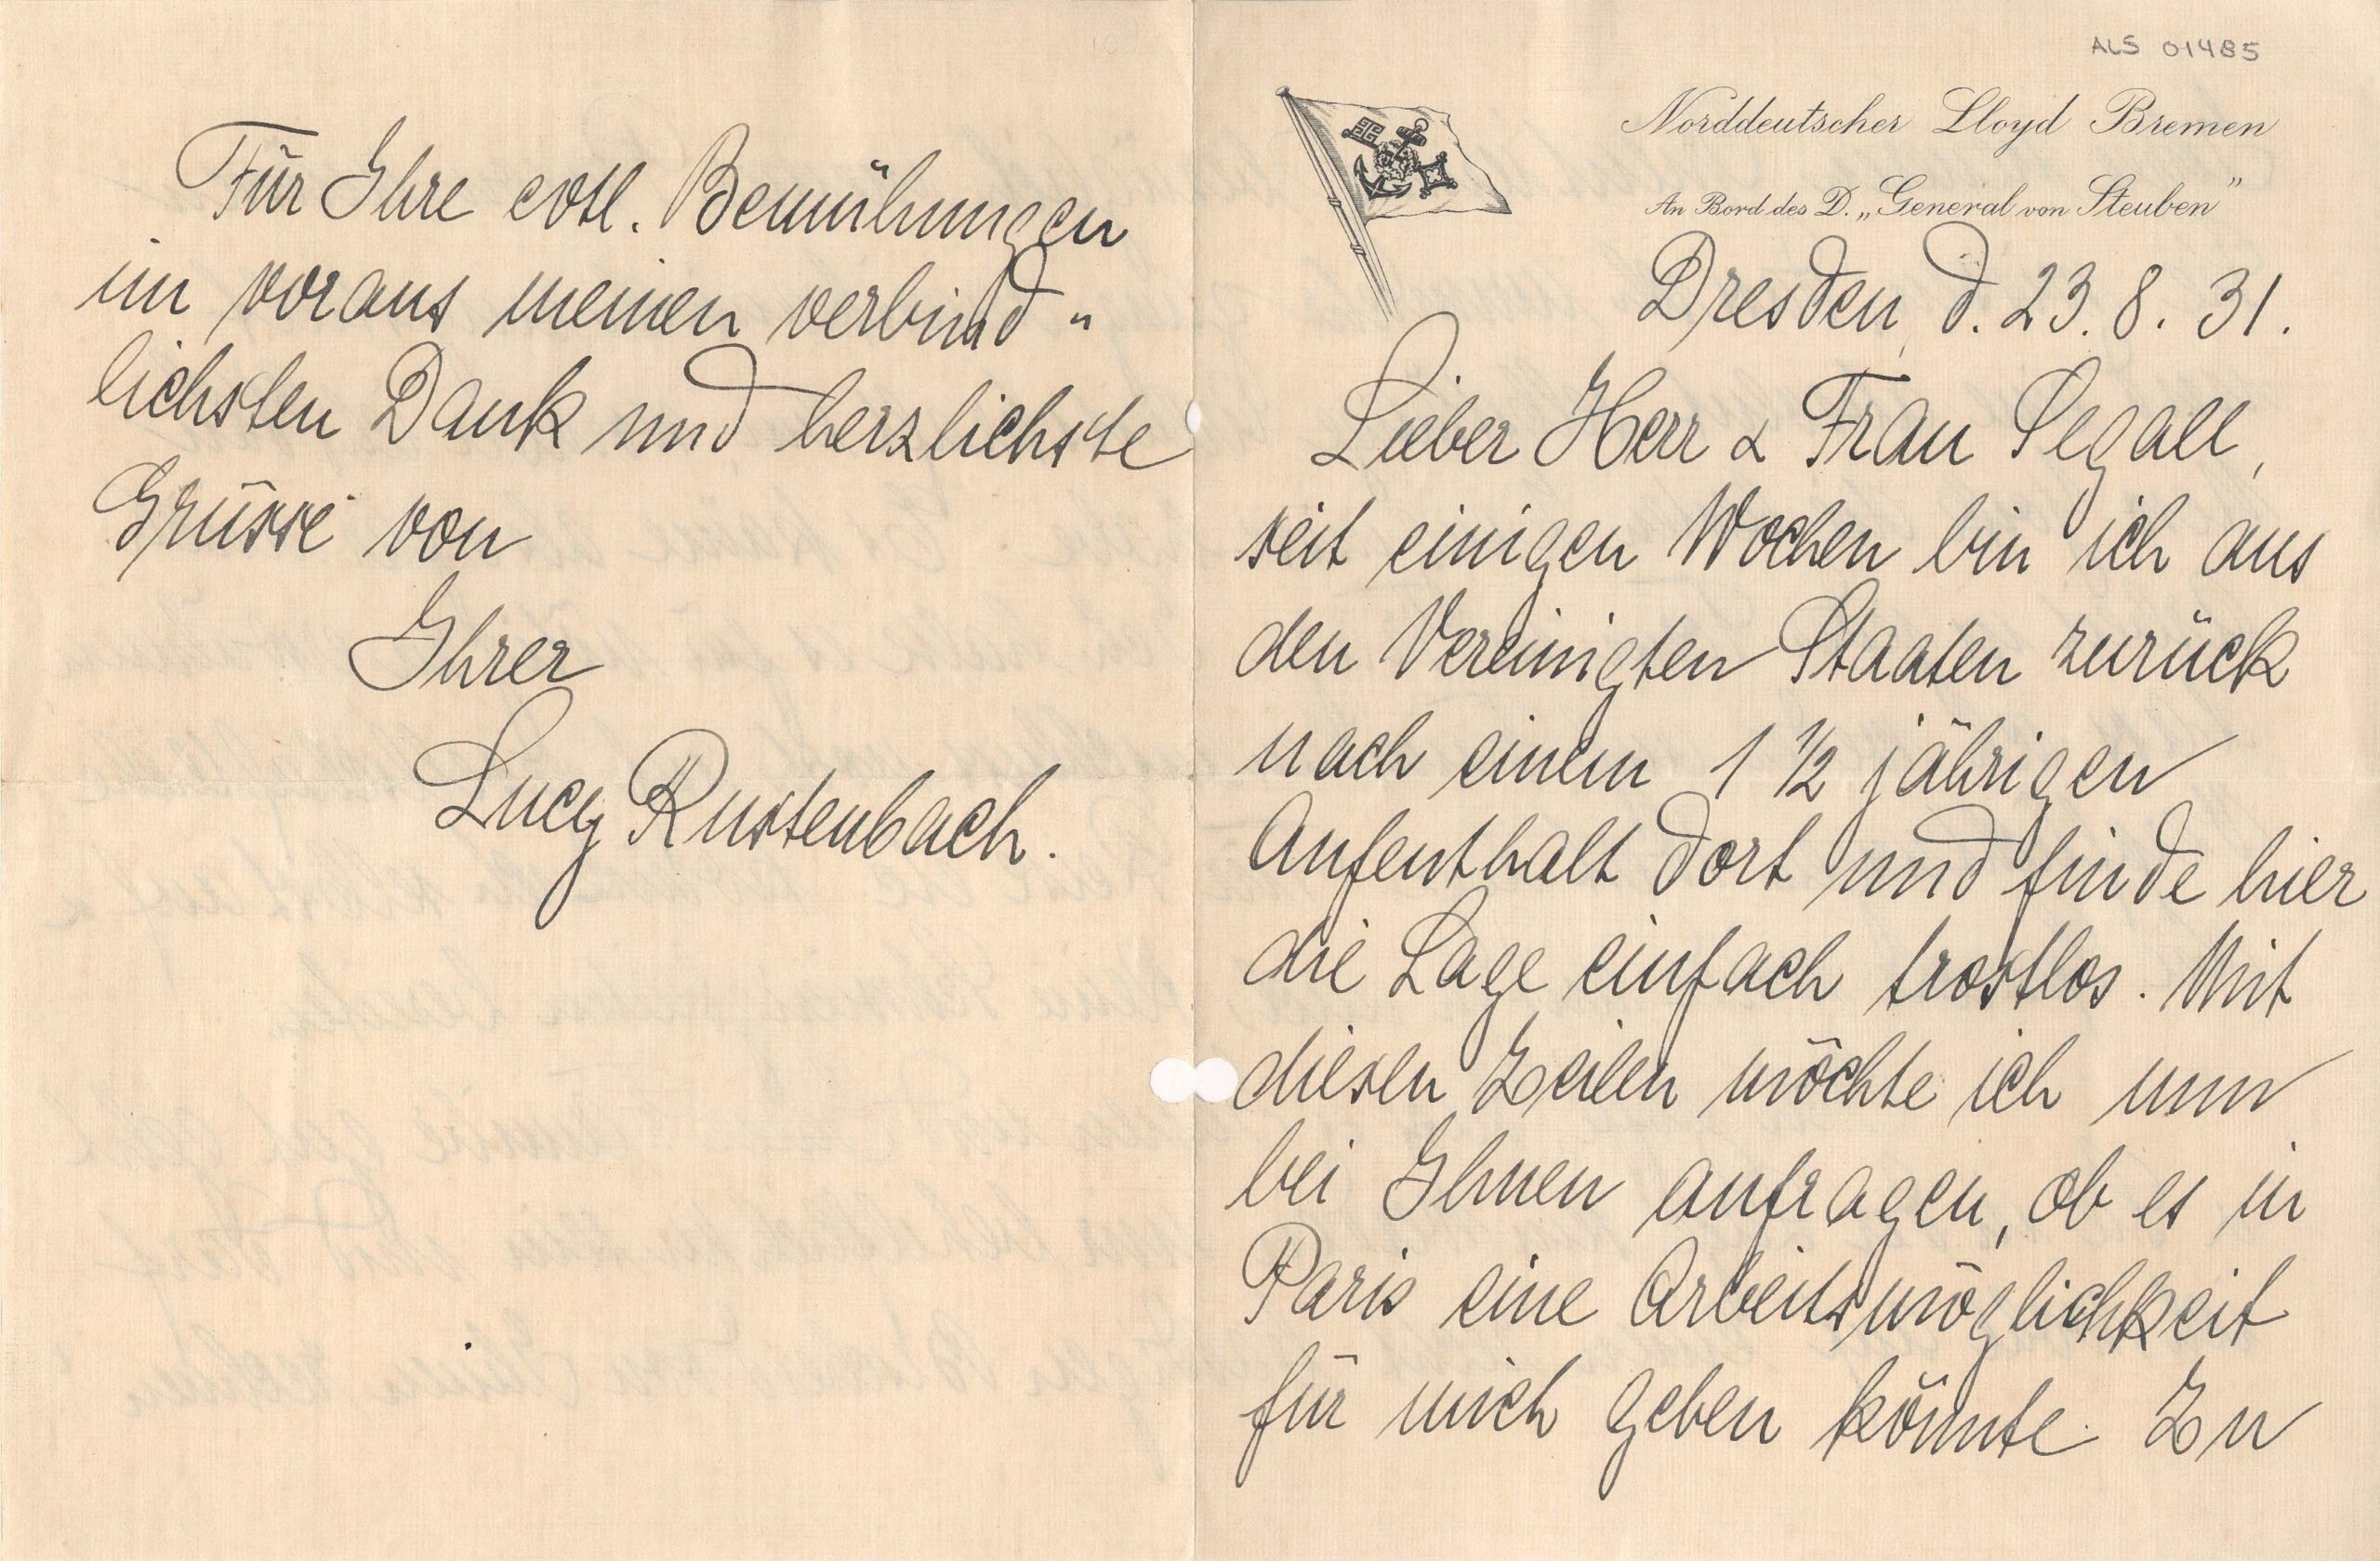 ALS 01485
Norddeutscher Lloyd Bremen
An Bord des D. „General von Steuben"
Dresden, d. 23. 8. 31.
Lieber Herr & Frau Segall,
seit einigen Wochen bin ich aus
den Vereinigten Staaten zurück
nach einem 1 ½ jährigen
Aufenthalt dort und finde hier
die Lage einfach trostlos. Mit
diesen Zeilen möchte ich nun
bei Ihnen anfragen, ob es in
Paris eine Arbeitsmöglichkeit
für mich geben könnte. Zu
Für Ihre evtl. Bemühungen
im voraus meinen verbind"
lichsten Dank und herzlichste
Grüsse von
Ihrer
Lucy Rustenbach.